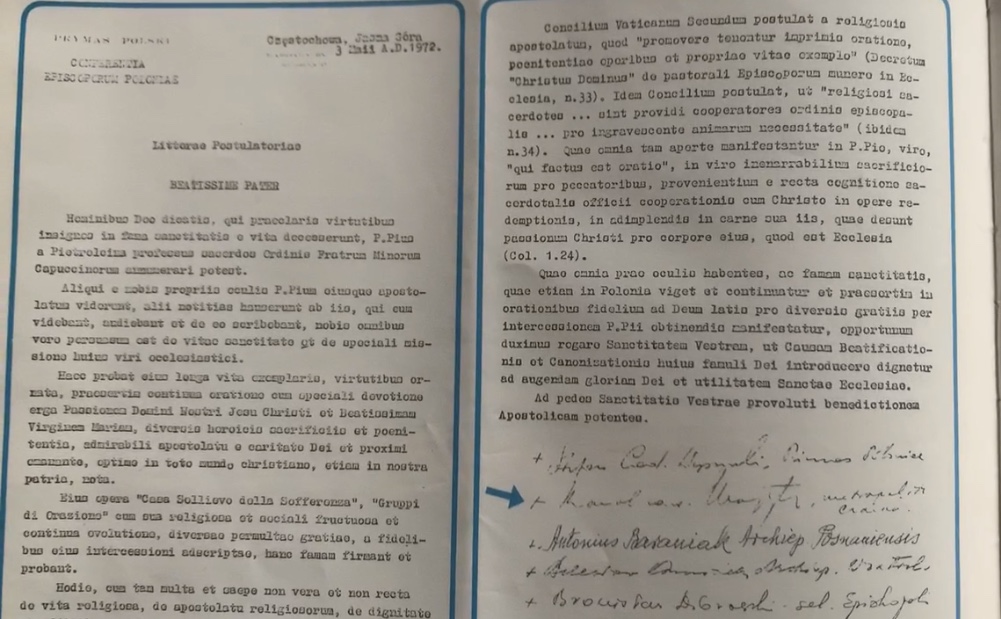 PRYMAS POLSKI
CONFERENTIA
EPISCOPORUM POLONIAE
Częstochowa, Jasna Góra
3 Maii A.D.1972.
Litterae Postulatoriae
BEATISSIME PATER
Hominibus Deo dicatis, qui praeclaris virtutibus
insignes in fama sanctitatis e vita decesserunt, P.Pius
a Pietrelcina professus sacerdos Ordinis Fratrum Minorum
Capuccinorum annumerari potest.
Aliqui e nobis propriis oculis P.Pium eiusque aposto-
latum viderunt, alii notitias hauserunt ab iis, qui eum
videbant, audiebant et de eo scribebant, nobis omnibus
vero persuasum est de vitae sanctitate et de speciali mis-
sione huius viri ecclesiastici.
Haec probat eius longa vita exemplaris, virtutibus or-
nata, praesertim continua oratione cum speciali devotione
erga Passionem Domini Nostri Jesu Christi et Beatissimam
Virginem Mariam, diversis heroicis sacrificiis et poeni-
tentia, admirabili apostolatu e caritate Dei et proximi
emanante, optime in toto mundo christiano, etiam in nostra
patria, nota.
Eius opera "Casa Sollievo della Sofferenza", "Gruppi
di Orazione" cum sua religiosa et sociali fructuosa et
continua evolutione, diversae permultae gratiae, a fideli-
bus eius intercessioni adscriptae, hanc famam firmant et
probant.
Hodie, cum tam multa et saepe non vera et non recta
de vita religiosa, de apostolatu religiosorum, de dignitate
Concilium Vaticanum Secundum postulat a religiosis
apostolatum, quod "promovere tenentur imprimis oratione,
poenitentiae operibus et propriae vitae exemplo" (Decretum
"Christus Dominus" de pastorali Episcoporum munere in Ec-
clesia, n.33). Idem Concilium postulat, ut "religiosi sa-
cerdotes ... sint providi cooperatores ordinis episcopa-
lis ... pro ingravescente animarum necessitate" (ibidem
n.34). Quae omnia tam aperte manifestantur in P.Pio, viro,
"qui factus est oratio", in viro inenarrabilium sacrificio-
rum pro peccatoribus, provenientium e recta cognitione sa-
cerdotalis officii cooperationis cum Christo in opere re-
demptionis, in adimplendis in carne sua iis, quae desunt
passionum Christi pro corpore eius, quod est Ecclesia
(Col. 1.24).
Quae omnia prae oculis habentes, ac famam sanctitatis,
quae etiam in Polonia viget et continuatur et praesertim in
orationibus fidelium ad Deum latis pro diversis gratiis per
intercessionem P.Pii obtinendis manifestatur, opportunum
duximus rogare Sanctitatem Vestram, ut Causam Beatificatio-
nis et Canonizationis huius famuli Dei introducere dignetur
ad augendam gloriam Dei et utilitatem Sanctae Ecclesiae.
Ad pedes Sanctitatis Vestrae provoluti benedictionem
Apostolicam petentes.
+ Card. Primas
+
+ Antonius Baraniak Archiep Posnaniensis
+ Archiep.
+